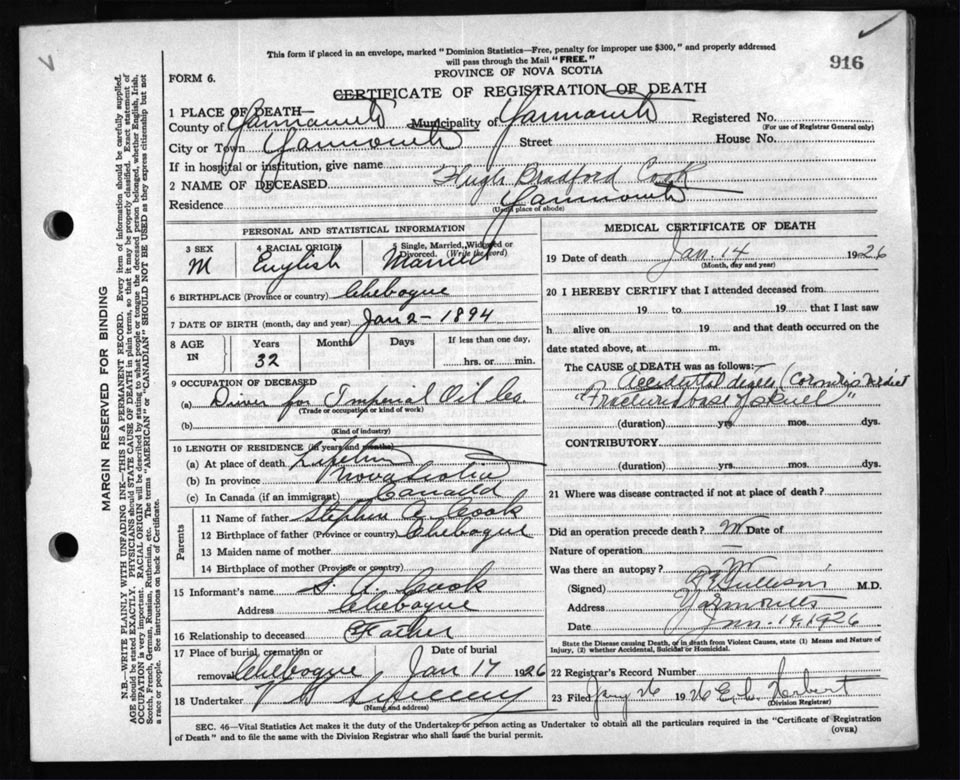 This form if placed in an envelope, marked "Dominion Statistics—Free, penalty for improper use $300," and properly addressed
will pass through the Mail "FREE."
916
PROVINCE OF NOVA SCOTIA
FORM 6.
CERTIFICATE OF REGISTRATION OF DEATH
1 PLACE OF DEATH—
County of Yarmouth Municipality of Yarmouth Registered No.
(For use of Registrar General only)
City or Town Yarmouth Street House No.
If in hospital or institution, give name
2 NAME OF DECEASED Hugh Bradford Cook
Residence Yarmouth
(Usual place of abode)
PERSONAL AND STATISTICAL INFORMATION
3 SEX M
4 RACIAL ORIGIN English
5 Single, Married, Widowed or Divorced. (Write the word) Married
6 BIRTHPLACE (Province or country) Chebogue
7 DATE OF BIRTH (month, day and year) Jan 2 - 1894
8 AGE IN Years Months Days If less than one day,
32 hrs. or min.
9 OCCUPATION OF DECEASED
(a) Driver for Imperial Oil Co
(Trade or occupation or kind of work)
(b)
(Kind of industry)
10 LENGTH OF RESIDENCE (in years and months)
(a) At place of death Lifetime
(b) In province Nova Scotia
(c) In Canada (if an immigrant) Canada
Parents
11 Name of father Stephen A Cook
12 Birthplace of father (Province or country) Chebogue
13 Maiden name of mother
14 Birthplace of mother (Province or country)
15 Informant's name S. A. Cook
Address Chebogue
16 Relationship to deceased Father
17 Place of burial, cremation or Date of burial
removal Chebogue Jan 17 1926
18 Undertaker V S Sweeny
(Name and address)
MEDICAL CERTIFICATE OF DEATH
19 Date of death Jan. 14 1926
(Month, day and year)
20 I HEREBY CERTIFY that I attended deceased from
19 to 19 that I last saw
h alive on 19 and that death occurred on the
date stated above, at m.
The CAUSE OF DEATH was as follows:
Accidental death (Coroner's Verdict
"Fractured base of skull"
(duration) yrs. mos. dys.
CONTRIBUTORY
(duration) yrs. mos. dys.
21 Where was disease contracted if not at place of death?
Did an operation precede death? Date of
Nature of operation
Was there an autopsy?
(Signed) M.D.
Address Yarmouth
Date Jan. 14, 1926
State the Disease causing Death, or in death from Violent Causes, state (1) Means and Nature of
Injury, (2) whether Accidental, Suicidal or Homicidal.
22 Registrar's Record Number
23 Filed Jany 26 1926 Herbert
(Division Registrar)
SEC. 46—Vital Statistics Act makes it the duty of the Undertaker or person acting as Undertaker to obtain all the particulars required in the "Certificate of Registration
of Death" and to file the same with the Division Registrar who shall issue the burial permit.
(OVER)
MARGIN RESERVED FOR BINDING
N.B.—WRITE PLAINLY WITH UNFADING INK—THIS IS A PERMANENT RECORD. Every item of information should be carefully supplied.
AGE should be stated EXACTLY. PHYSICIANS should STATE CAUSE OF DEATH in plain terms, so that it may be properly classified. Exact statement of
OCCUPATION is very important. RACIAL ORIGIN will be described by stating to what people or tongue the deceased person belonged, whether English, Irish,
Scotch, French, German, Russian, Ruthenian, etc. The terms "AMERICAN" or "CANADIAN" SHOULD NOT BE USED as they express citizenship but not
a race or people. See instructions on back of Certificate.